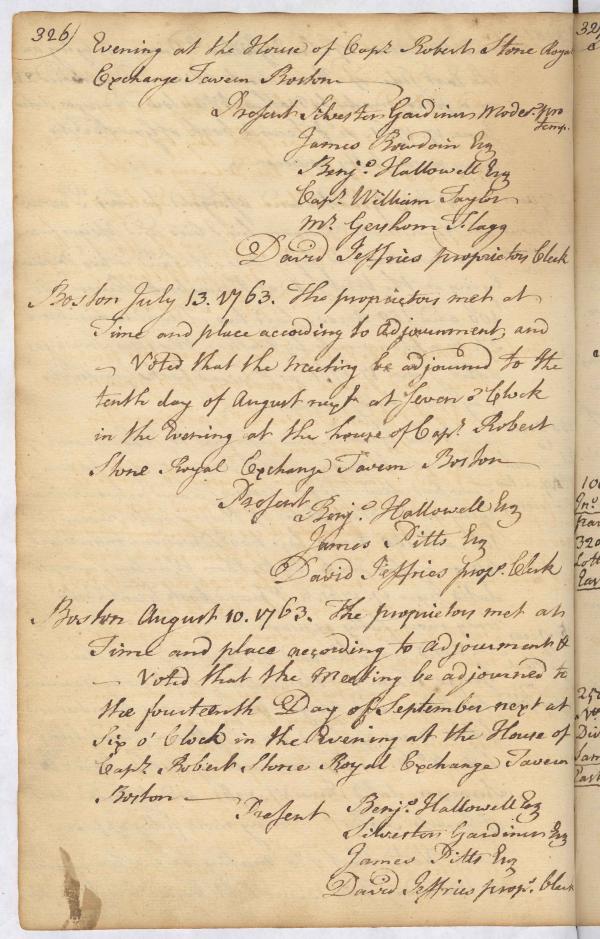 326)
Evening at the House of Capt. Robert Stone Royal
Exchange Tavern Boston
Present Silvester Gardiner Moder. pro
temp.
James Bowdoin Esq
Benjo. Hallowell Esq
Capt. William Taylor
Mr. Gershom Flagg
David Jeffries proprietors Clerk
Boston July 13. 1763. The proprietors met at
Time and place according to adjournment, and
— Voted that the meeting be adjourned to the
tenth day of August next at seven o'Clock
in the Evening at the house of Capt. Robert
Stone Royal Exchange Tavern Boston
Present
Benjo. Hallowell Esq
James Pitts Esq
David Jeffries prop. Clerk
Boston August 10. 1763. The proprietors met at
Time and place according to adjournment &
— Voted that the Meeting be adjourned to
the fourteenth Day of September next at
Six o' Clock in the Evening at the House of
Capt. Robert Stone Royal Exchange Tavern
Boston
Present Benjo. Hallowell Esq
Silvester Gardiner Esq
James Pitts Esq
David Jeffries props. Clerk